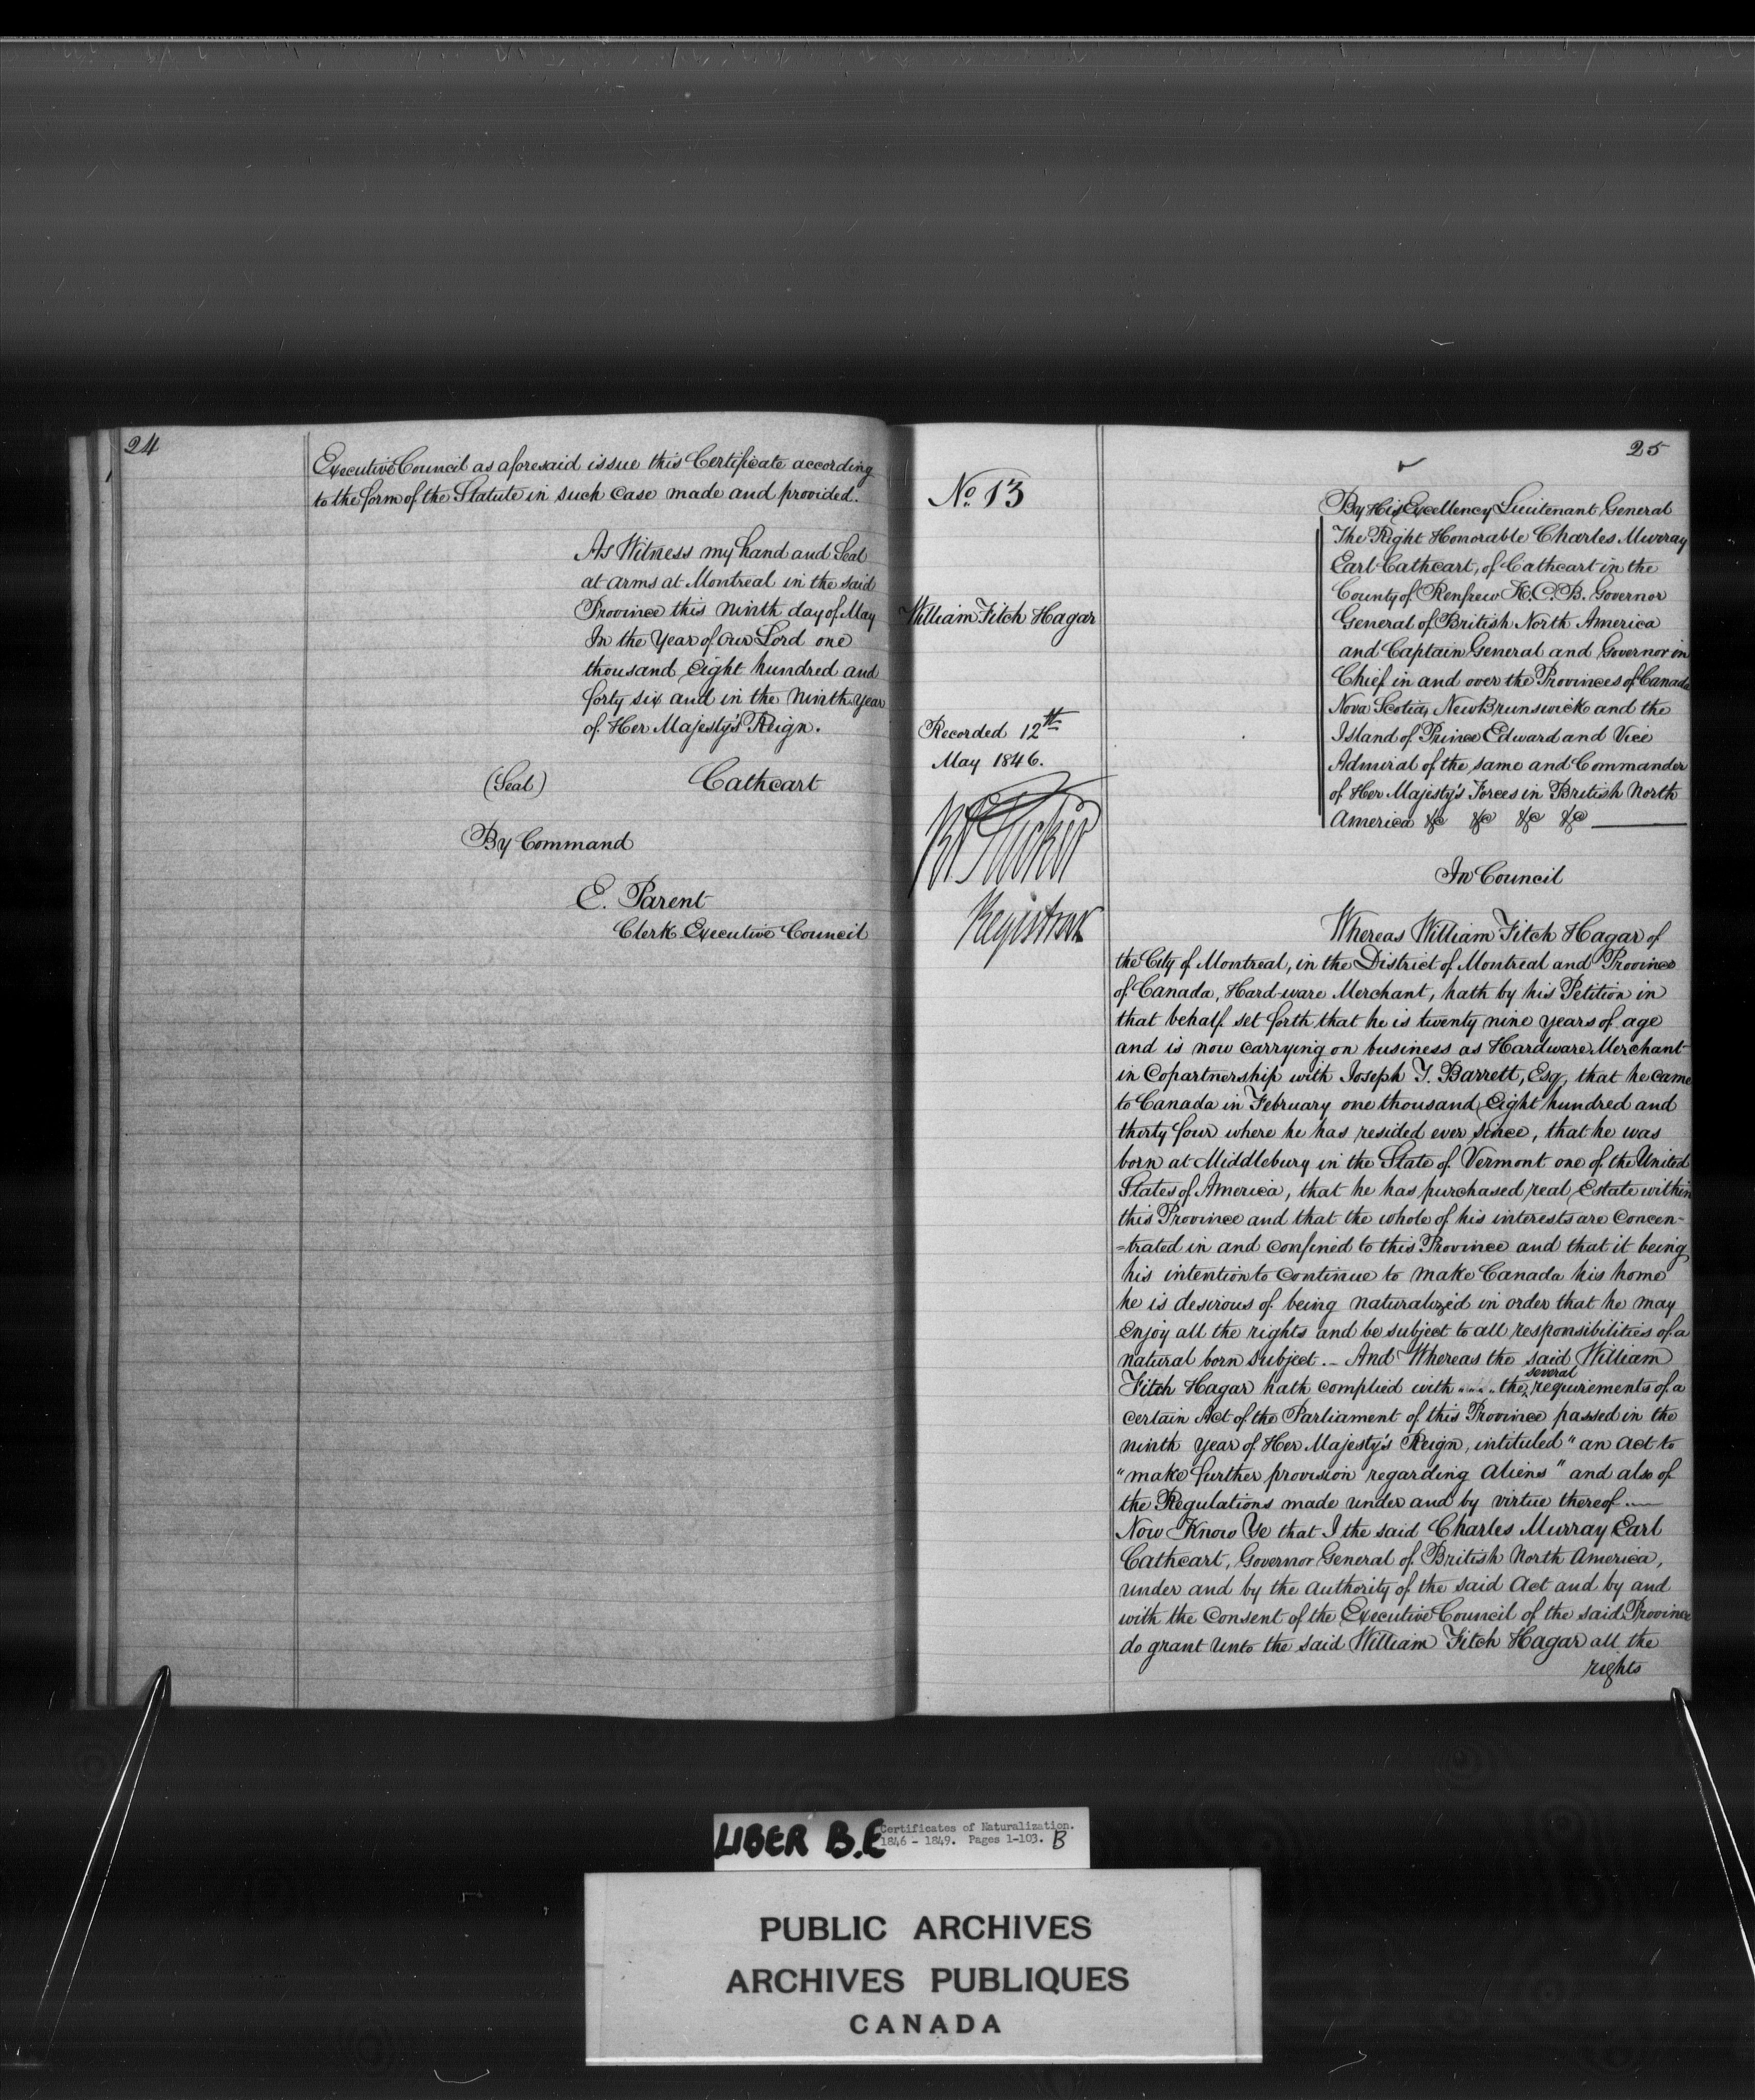 24
Executive Council as aforesaid issue this Certificate according
to the form of the Statute in such case made and provided.
As Witness my hand and Seal
at arms at Montreal in the said
Province this ninth day of May
In the Year of Our Lord one
thousand Eight hundred and
forty six and in the Ninth year
of Her Majesty's Reign.
(Seal) Cathcart
By Command
E. Parent
Clerk Executive Council
No. 13
William Fitch Hagar
Recorded 12th
May 1846.
Registrar
25
By His Excellency Lieutenant General
The Right Honorable Charles Murray
Earl Cathcart, of Cathcart in the
County of Renfrew K.C.B. Governor
General of British North America
and Captain General and Governor in
Chief in and over the Provinces of Canada
Nova Scotia, New Brunswick and the
Island of Prince Edward and Vice
Admiral of the same and Commander
of Her Majesty's Forces in British North
America &c &c &c &c
In Council
Whereas William Fitch Hagar of
the City of Montreal, in the District of Montreal and Province
of Canada, Hard-ware Merchant, hath by his Petition in
that behalf set forth that he is twenty nine years of age
and is now carrying on business as Hardware Merchant
in Copartnership with Joseph T. Barrett, Esq, that he came
to Canada in February one thousand Eight hundred and
thirty four where he has resided ever since, that he was
born at Middlebury in the State of Vermont one of the United
States of America, that he has purchased real Estate within
this Province and that the whole of his interests are Concen-
=trated in and confined to this Province and that it being
his intention to Continue to make Canada his home
he is desirous of being naturalized in order that he may
Enjoy all the rights and be subject to all responsibilities of a
natural born subject. - And Whereas the said William
Fitch Hagar hath complied with the several requirements of a
certain Act of the Parliament of this Province passed in the
ninth year of Her Majesty's Reign, intituled "an Act to
"make further provision regarding Aliens" and also of
the Regulations made under and by virtue thereof
Now Know Ye that I the said Charles Murray Earl
Cathcart, Governor General of British North America,
under and by the authority of the said Act and by and
with the Consent of the Executive Council of the said Province
do grant unto the said William Fitch Hagar all the
rights
LIBER B.E
Certificates of Naturalization.
1846 - 1849. Pages 1-103. B
PUBLIC ARCHIVES
ARCHIVES PUBLIQUES
CANADA